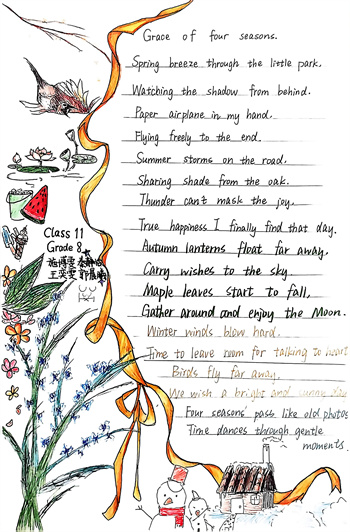 Grace of four seasons.
Spring breeze through the little park,
Watching the shadow from behind.
Paper airplane in my hand,
Flying freely to the end.
Summer storms on the road,
Sharing shade from the oak.
Thunder can't mask the joy,
True happiness I finally find that day.
Autumn lanterns float far away,
Carry wishes to the sky.
Maple leaves start to fall,
Gather around and enjoy the Moon.
Winter winds blow hard,
Time to leave room for talking to heart
Birds fly far away,
We wish a bright and sunny day
Four seasons' pass like old photos
Time dances through gentle
moments.
Class 11
Grade 8
施博雯
王奕雯